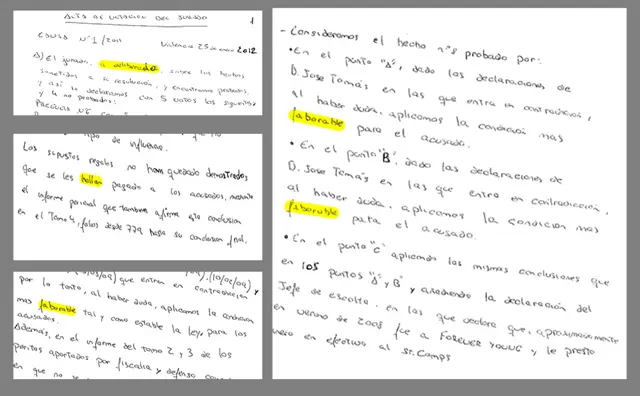 ACTA DE VOTACIÓN DEL JURADO
1
CAUSA Nº 1/2011
Valencia 25 de enero 2012
A) El jurado, a deliberado, sobre los hechos
sometidos a la resolución, y encontramos probados,
y así lo declaramos con 5 votos los siguientes
y 4 no probados:
de influencia.
Los supuestos regalos no han quedado demostrados
que se les hallan pagado a los acusados, mediante
el informe pericial que tambien afirma esta conclusion
en el Tomo 4, folios desde 779 hasta su conclusion final.
que entran en contradicción y
por lo tanto, al haber duda, aplicamos la condición
mas faborable tal y como estable la ley, para los
acusados.
Además, en el informe del tomo 2 y 3 de los
peritos aportados por fiscalía y defensa
en que no se
- Consideramos el hecho nº8 probado por:
• En el punto "A", dado las declaraciones de
D. Jose Tomás en las que entra en contradicción,
al haber duda, aplicamos la condición mas
faborable para el acusado.
• En el punto "B", dado las declaraciones de
D. Jose Tomás en las que entra en contradicción,
al haber duda, aplicamos la condicion mas
faborable para el acusado.
• En el punto "C" aplicando las mismas conclusiones que
en los puntos "A" y "B" y añadiendo la declaración del
Jefe de escolta, en las que declara que, aproximadamente
en verano de 2008 fue a FOREVER YOUNG y le presto
en efectivo al Sr. Camps